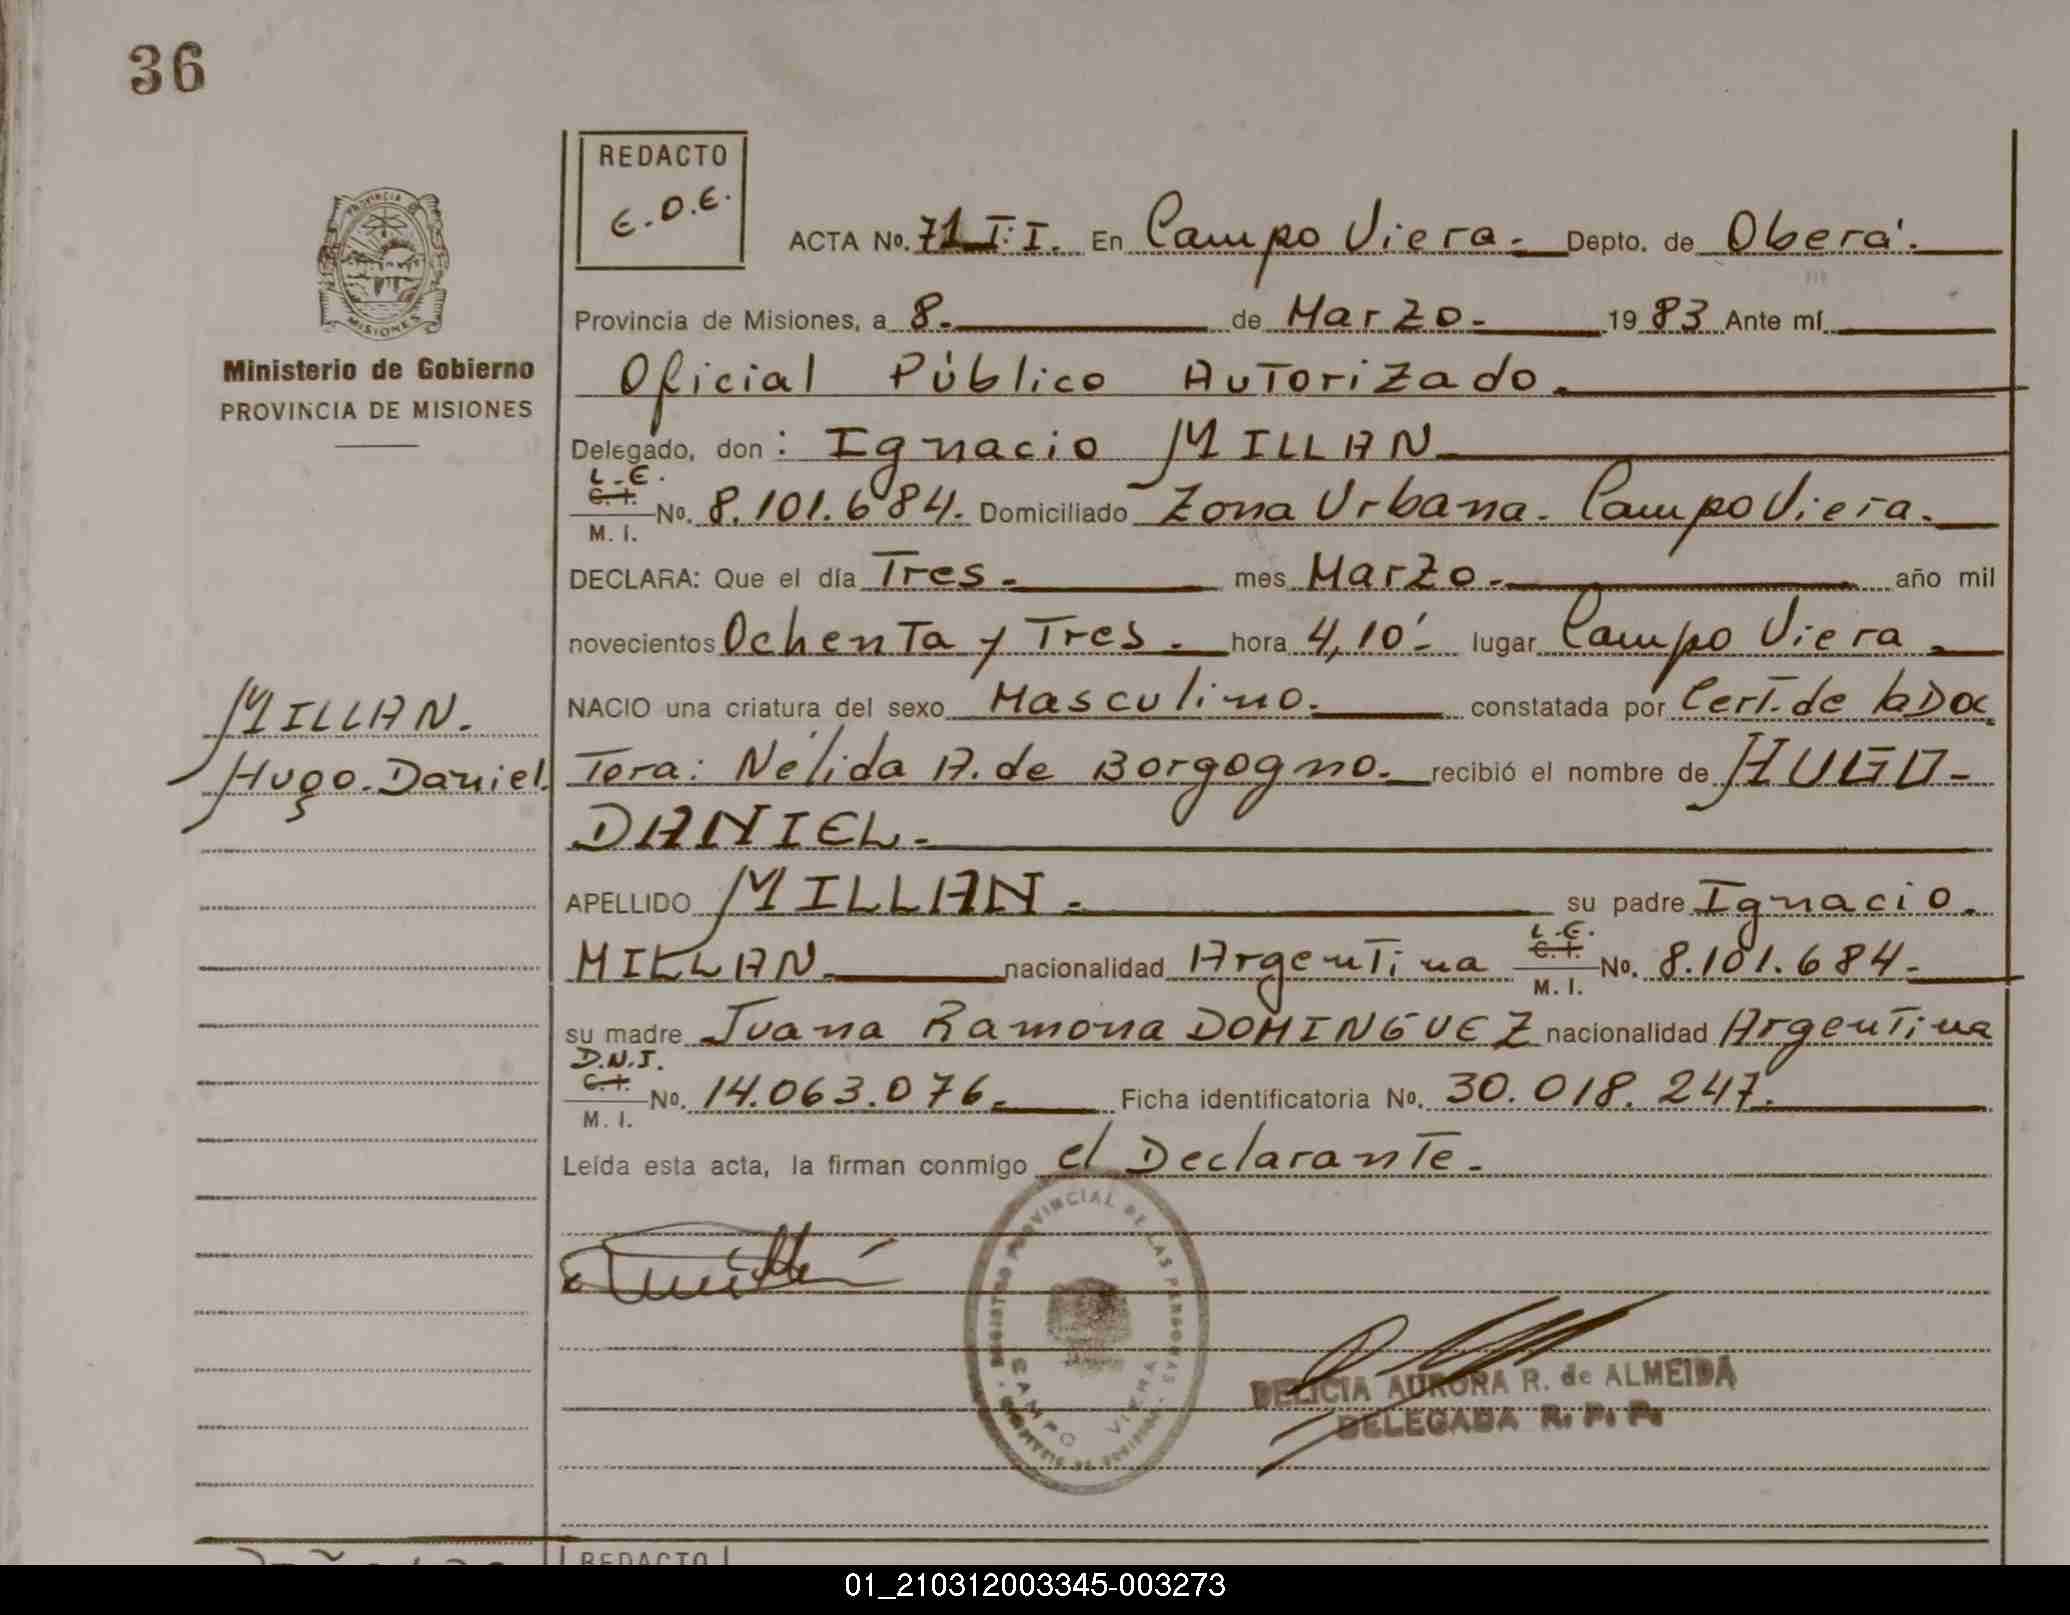 36
REDACTO
E.D.E.
PROVINCIA DE
MISIONES
Ministerio de Gobierno
PROVINCIA DE MISIONES
ACTA No. 71 T: I. En Campo Viera.- Depto. de Oberá.
Provincia de Misiones, a 8. de Marzo. 1983 Ante mí
Oficial Público Autorizado.
Delegado, don: Ignacio MILLAN
L.E.
C.I.
M. I.
No. 8.101.684. Domiciliado Zona Urbana. Campo Viera.
DECLARA: Que el día Tres. mes Marzo. año mil
novecientos Ochenta y Tres. hora 4,10'- lugar Campo Viera.
MILLAN.
Hugo. Daniel.
NACIO una criatura del sexo Masculino. constatada por Cert. de la Doc
Tora: Nélida A. de Borgogno. recibió el nombre de HUGO-
DANIEL.
APELLIDO MILLAN. su padre Ignacio.
MILLAN. nacionalidad Argentina
L.E.
C.I.
M. I.
No. 8.101.684.
su madre Juana Ramona DOMINGUEZ nacionalidad Argentina
D.N.I.
C.I.
M. I.
No. 14.063.076. Ficha identificatoria No. 30.018.247.
Leída esta acta, la firman conmigo el Declarante.
REGISTRO PROVINCIAL DE LAS PERSONAS
CAMPO VIERA
DELICIA AURORA R. de ALMEIDA
DELEGADA R. P. P.
REDACTO
01_210312003345-003273